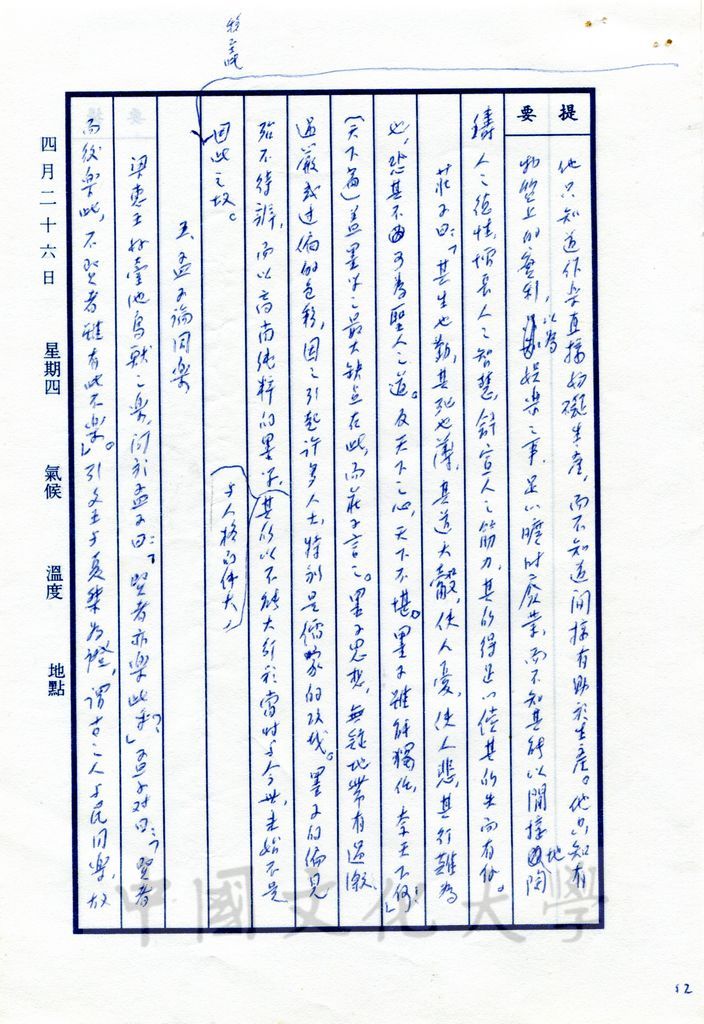 移至此
提要
他只知道作樂直接妨礙生產，而不知道間接有助於生產。他只知有
物質上的實利，以為娛樂之事，足以曠時廢業，而不知其能以間接地陶
鑄人之德性，增長人之智慧，舒宣人之筋力，其所得足以償其所失而有餘。
莊子曰：「其生也勤，其死也薄，其道大觳，使人憂，使人悲，其行難為
也，恐其不可為聖人之道。反天下之心，天下不堪。墨子雖能獨任，奈天下何」
（天下篇）蓋墨子之最大缺點在此，而莊子言之。墨子思想，無疑地帶有過激
過嚴或過偏的色彩，因之引起許多人士，特別是儒家的攻擊。墨子的偏見
殆不待辨，而以高尚純粹的墨子，其所以不能大行於當時與今世，未始不是
與人格的偉大，
因此之故。
五、孟子論同樂
梁惠王於臺池鳥獸之樂，問於孟子曰：「賢者亦樂此乎？」孟子對曰：「賢者
而後樂此，不賢者雖有此不樂」。引文王與夏桀為證，謂古之人與民同樂，故
四月二十六日 星期四 氣候 溫度 地點
中國文化大學
52